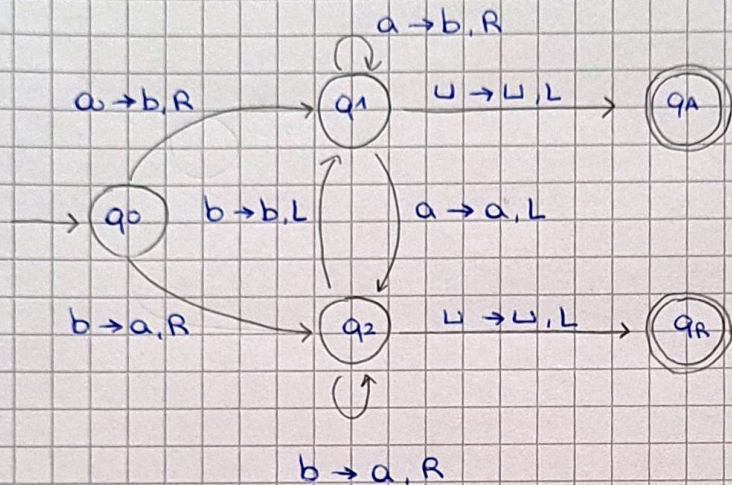 a → b, R
a → b, R
q1
⊔ → ⊔, L
qA
q0
b → b, L
a → a, L
b → a, R
q2
⊔ → ⊔, L
qR
b → a, R